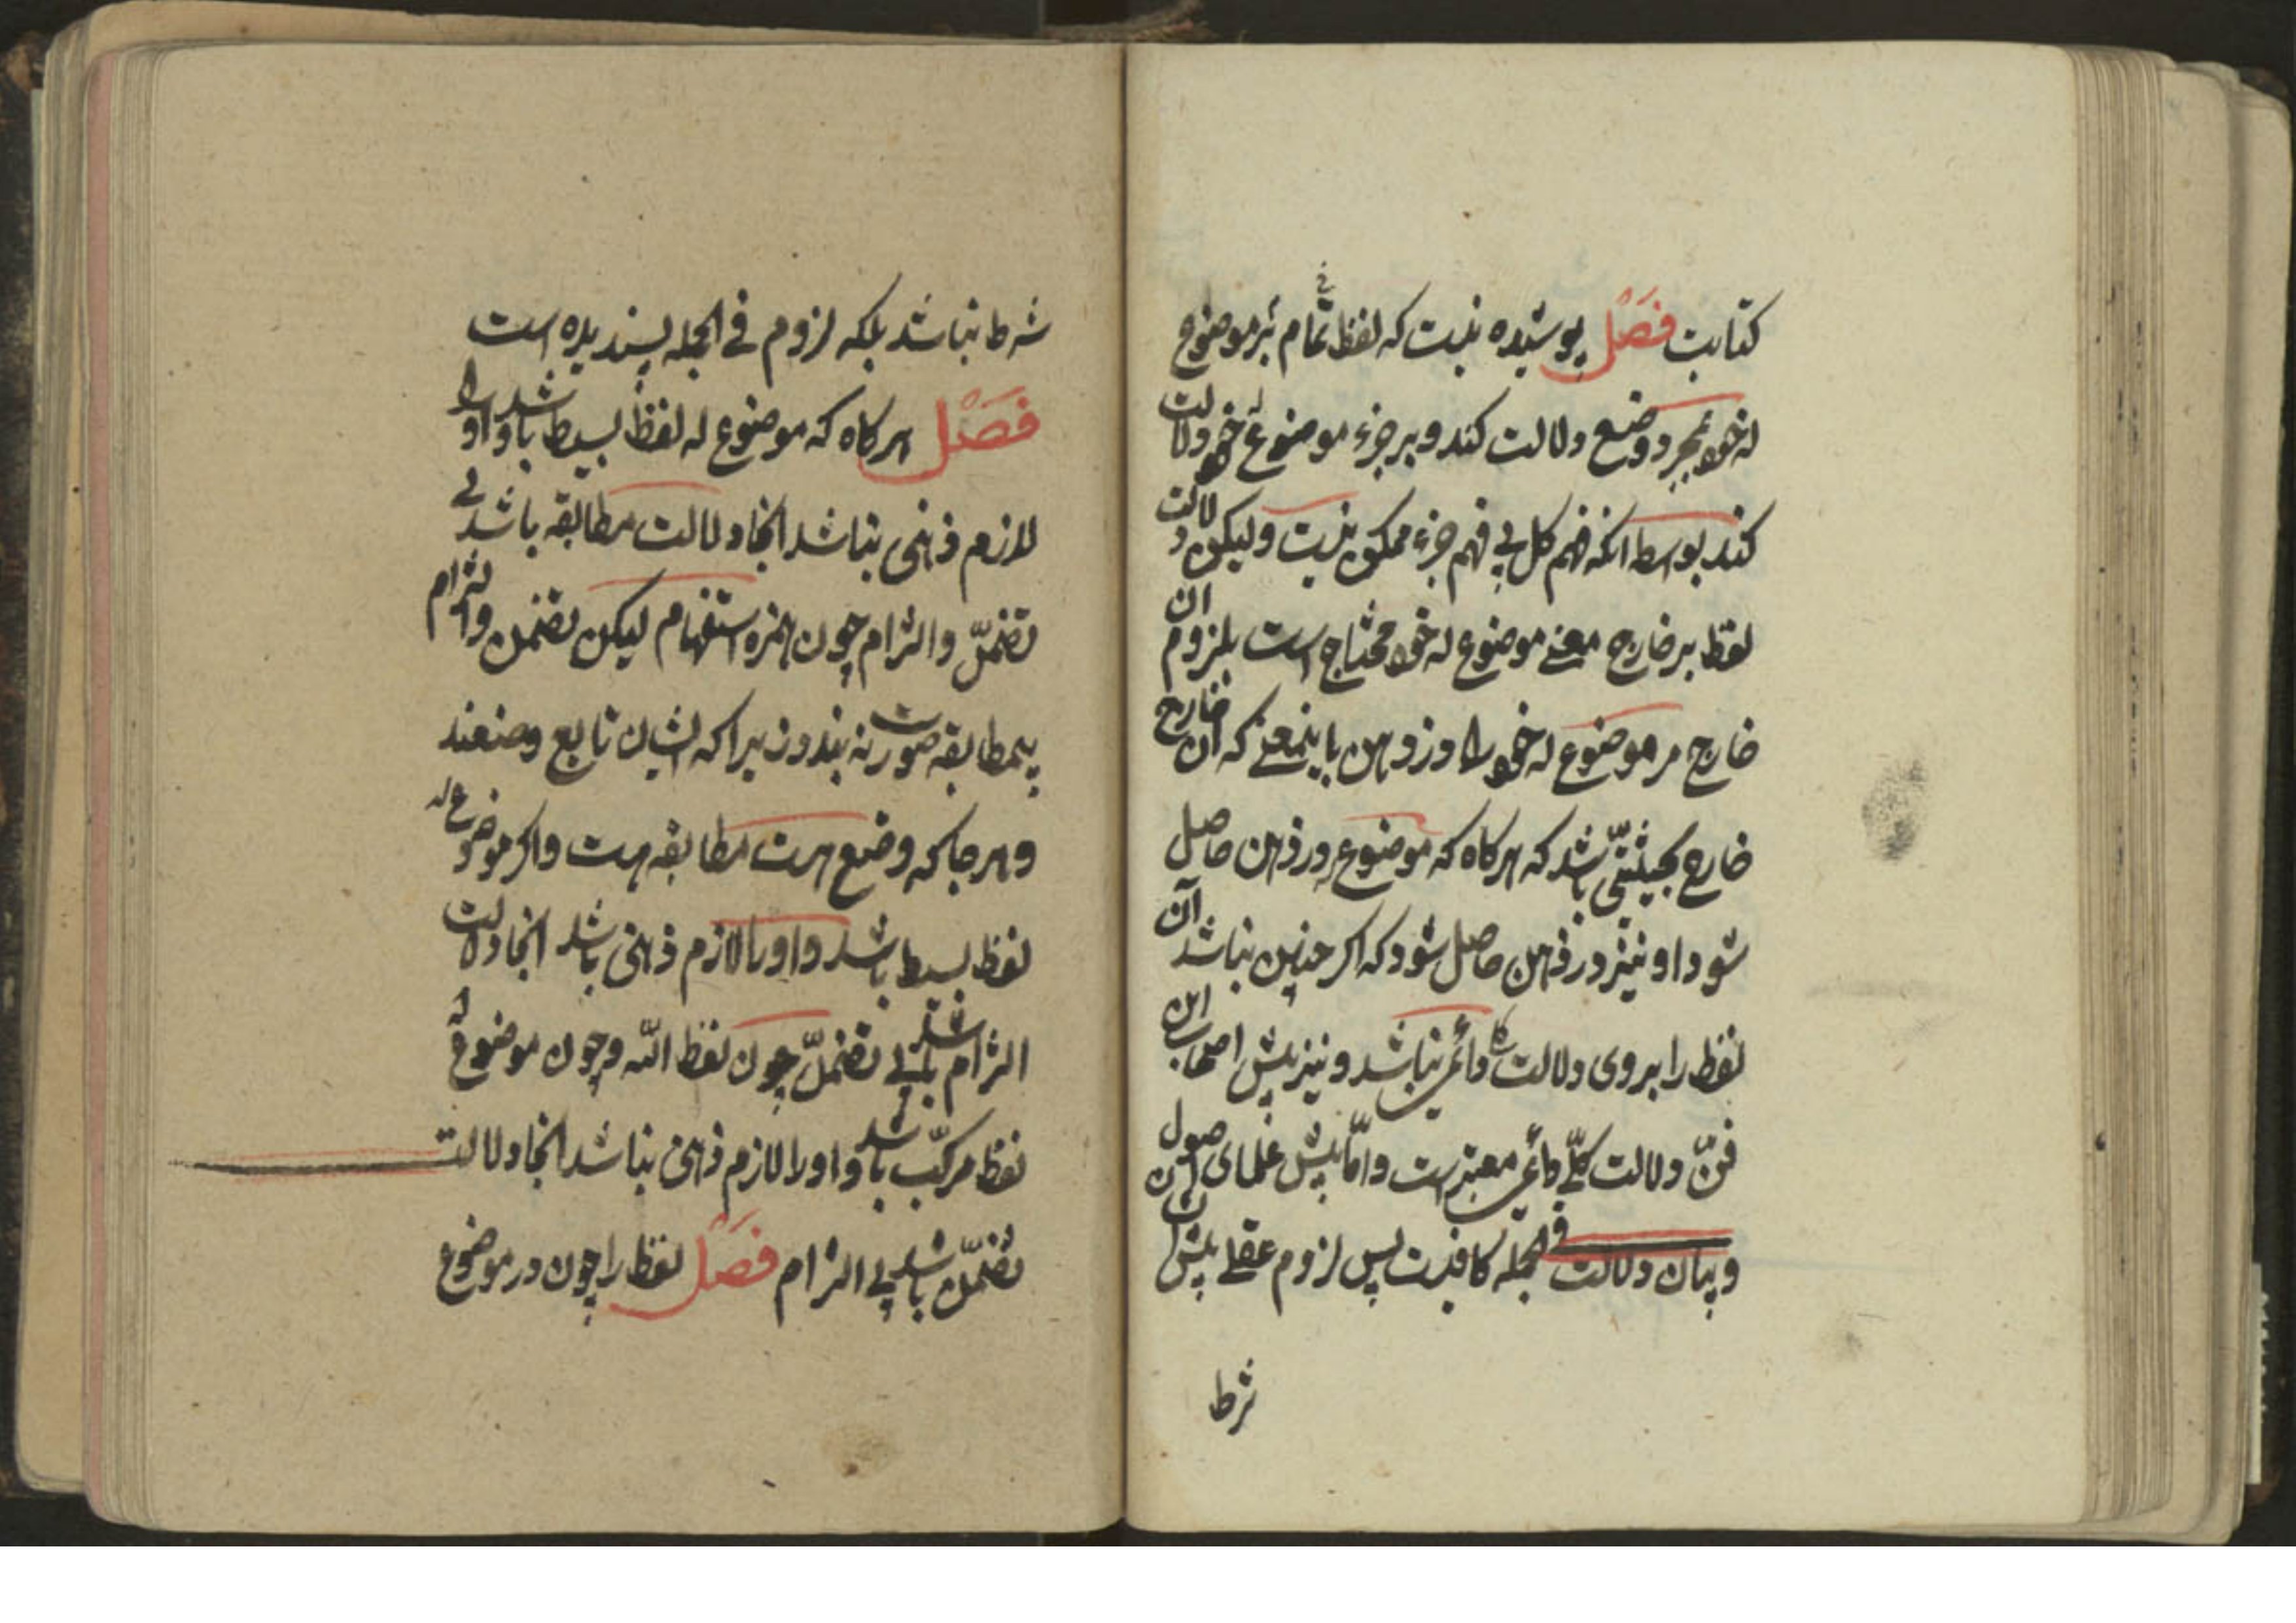 کتابت فصل پوشیده نیست که لفظ تمام بر موضوع
له خود بمجرد وضع دلالت کند و بر جزء موضوع له خود دلالت
کند بواسطه انکه فهم کل بی فهم جزء ممکن نیست ولیکن دلالت
لفظ بر خارج معنی موضوع له خود محتاج است بلزوم ان
خارج مر موضوع له خود را در ذهن باینمعنی که ان خارج
خارج بحیثیتی باشد که هرکاه که موضوع له در ذهن حاصل
شود او نیز در ذهن حاصل شود که اکر چنین نباشد آن
لفظ را بر وی دلالت دائمی نباشد و نیز پیش اصحاب این
فن دلالت کلی دائمی معتبر است و امّا پیش علمای اصول
و بیان دلالت فی الجمله کافیست پس لزوم عقلی پیش ایشان
شرط
شرط نباشد بلکه لزوم فی الجمله پسندیده است
فصل هرکاه که موضوع له لفظ بسیط باشد و او را
لازم ذهنی نباشد انجا دلالت مطابقه باشد بی
تضمّن و التزام چون همزه استفهام لیکن تضمن و التزام
بیمطابقه صورت نه بندد زیرا که ایشان تابع وضعند
و هر جا که وضع هست مطابقه هست و اکر موضوع له
لفظ بسیط باشد و او را لازم ذهنی باشد انجا دلالت
التزام باشد بی تضمّن چون لفظ الله و چون موضوع له
لفظ مرکّب باشد و او را لازم ذهنی نباشد انجا دلالت
تضمّن باشد بی التزام فصل لفظ را چون در موضوع